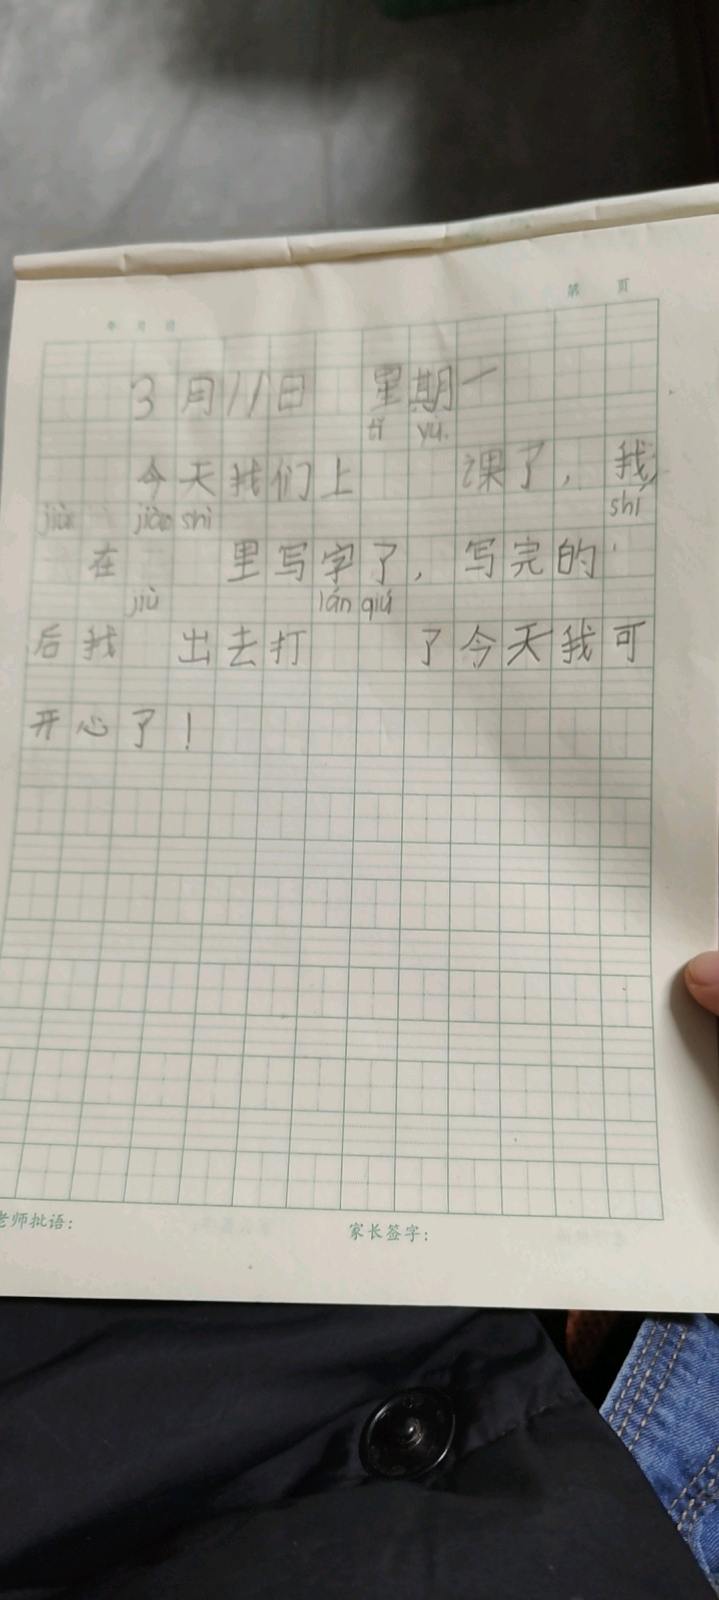 第 页
年 月 日
3月11日 星期一
tǐ yù
今天我们上 课了，我
jiù jiào shì shí
在 里写字了，写完的
jiù lán qiú
后我 出去打 了今天我可
开心了！
老师批语：
家长签字：